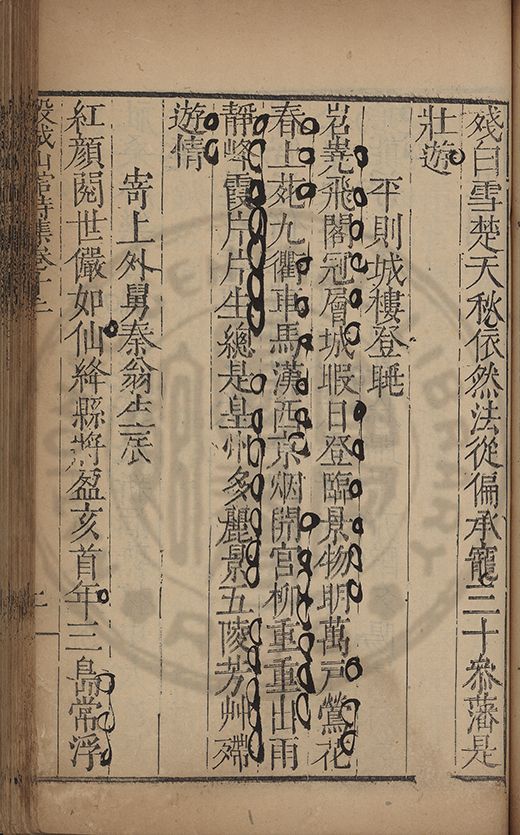 殘白雪楚天秋依然法從偏承寵三十參藩是
壯遊
平則城樓登眺
岧嶤飛閣冠層城暇日登臨景物明萬戶鶯花
春上苑九衢車馬漢西京烟開宮柳重重出雨
靜峰霞片片生總是皇州多麗景五陵芳艸殢
遊情
寄上外舅秦翁生辰
紅顏閱世儼如仙絳縣將盈亥首年三島常浮
穀城山館詩集卷十